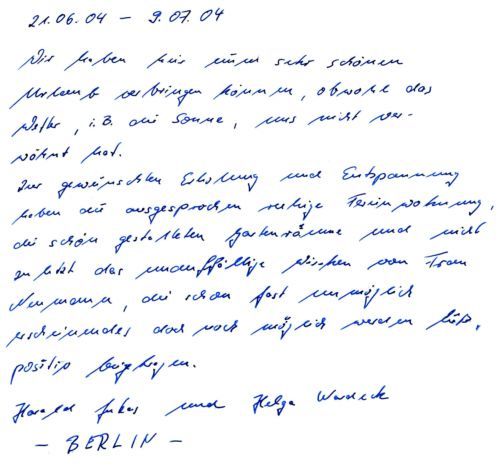 21.06.04 – 9.07.04
Wir haben hier einen sehr schönen
Urlaub verbringen können, obwohl das
Wetter, i.B. die Sonne, uns nicht ver-
wöhnt hat.
Zur gewünschten Erholung und Entspannung
haben die ausgesprochen ruhige Ferienwohnung,
die schön gestalteten Gartenräume und nicht
zuletzt das unauffällige Wirken von Frau
Neumann, die schon fast unmöglich
erscheinendes doch noch möglich werden ließ,
positiv beigetragen.
Harald und Helga Wardeck
– BERLIN –